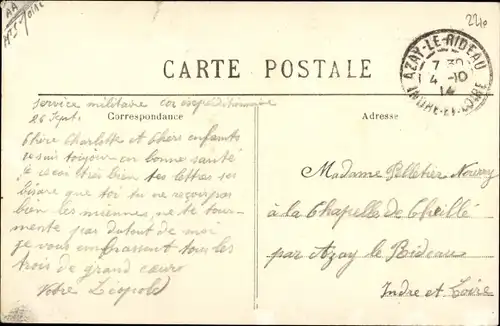 AA
Hte-Loire
2210
AZAY-LE-RIDEAU
7 30
4 -10
14
INDRE-ET-LOIRE
CARTE POSTALE
Service militaire
26 Sept.
Correspondance
Adresse
Chère Charlotte et Chers enfants
je suis toujour en bonne santé
Je reçoi très bien tes lettres ses
bisare que toi tu ne reçoi pas
bien les miennes, ne te tour-
mente pas du tout de moi
je vous embrassant tous les
trois de grand cœur
Votre Léopold
Madame Pelletier
à la Chapelle de Cheillé
par Azay le Rideau
Indre et Loire